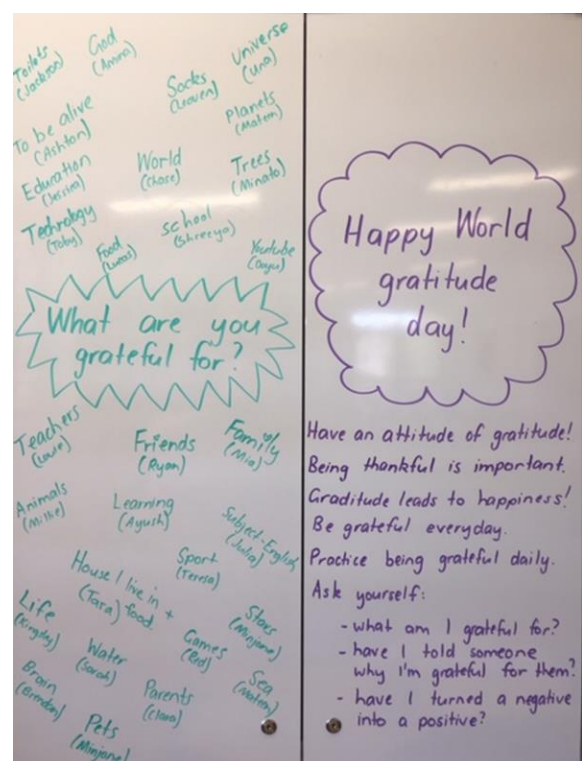 Toilets
(Jackson)
God
(Amira)
Universe
(Una)
Socks
Planets
To be alive
(Ashton)
World
(Chase)
Trees
(Minato)
Education
(Jessica)
Technology
(Toby)
school
(Shreeya)
Food
(Lucas)
Youtube
What are you
grateful for?
Teachers
Friends
(Ryan)
Family
(Mia)
Animals
(Millie)
Learning
(Ayush)
Subject-English
House I live in +
(Tara) food
Sport
(Teresa)
Life
(Kingsley)
Water
(Sarah)
Games
Stars
(Minjane)
Brain
(Brendan)
Parents
(Clara)
Sea
Pets
(Minjane)
Happy World
gratitude
day!
Have an attitude of gratitude!
Being thankful is important.
Graditude leads to happiness!
Be grateful everyday.
Practice being grateful daily.
Ask yourself:
- what am I grateful for?
- have I told someone
why I'm grateful for them?
- have I turned a negative
into a positive?